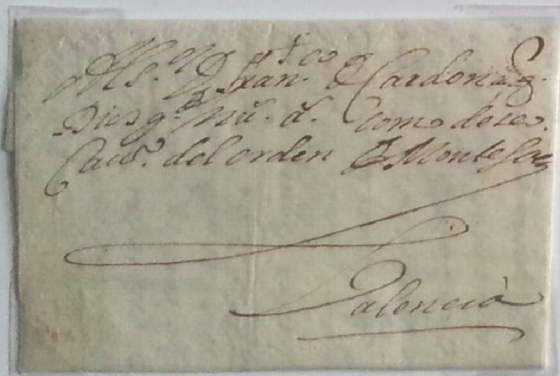 Al S.r D.n Fran.co de Cardona q.e
Dios g.e mu.s a.s como deseo
Cau.o del orden de Montesa
Valencia